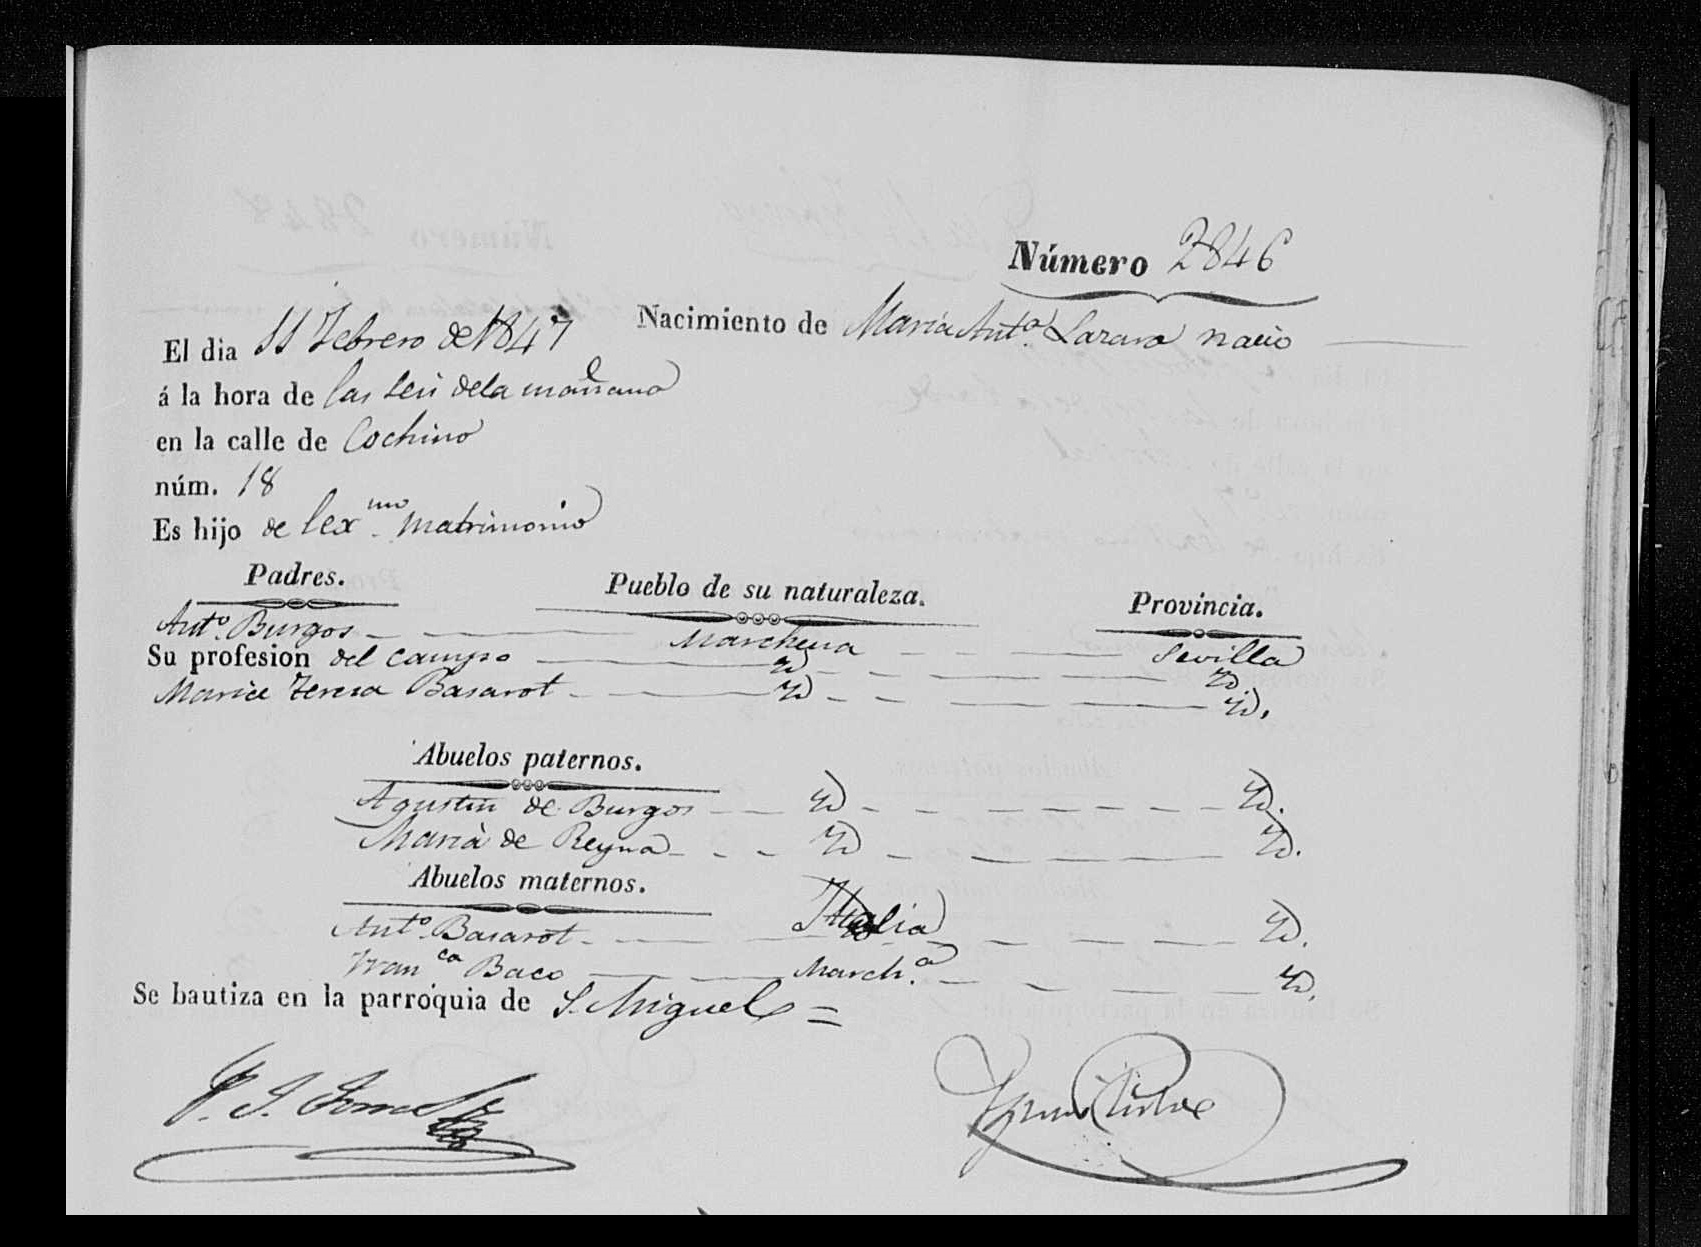 Número 2846
Nacimiento de Maria Ant.ª Lazara nacio
El dia 11 Febrero de 1847
á la hora de las seis de la mañana
en la calle de Cochino
núm. 18
Es hijo de lex.mo matrimonio
Padres. Pueblo de su naturaleza. Provincia.
Ant.º Burgos Marchena Sevilla
Su profesion del campo Yd Yd
Maria Teresa Basarot Yd Yd.
Abuelos paternos.
Agustin de Burgos Yd Yd.
Maria de Reyna Yd Yd.
Abuelos maternos.
Ant.º Basarot Ytalia Yd.
Fran.ca Baco March.ª Yd.
Se bautiza en la parroquia de S. Miguel =